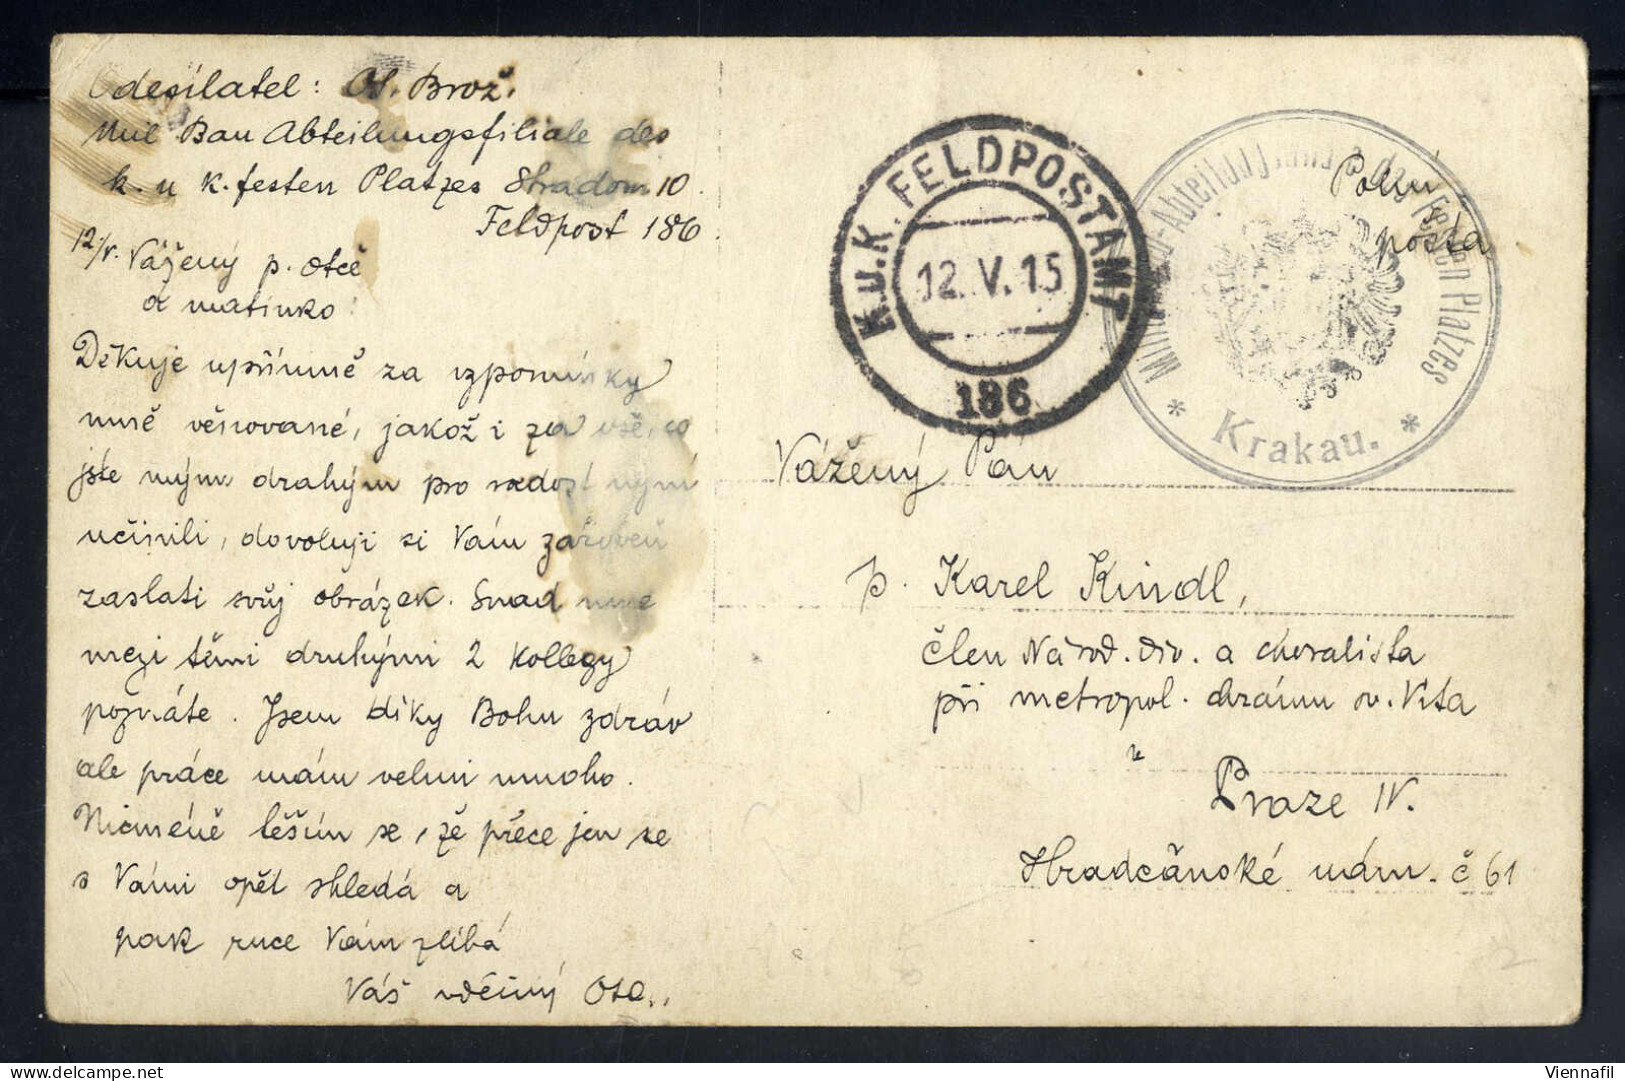 Odesílatel: Ot. Brož.
Mil Bau Abteilungsfiliale des
k. u k. festen Platzes Stradom 10.
Feldpost 186.
12/V. Vážený p. otče
a matinko!
Děkuje upřímně za vzpomínky
mně věnované, jakož i za vše, co
jste mým drahým pro radost
učinili, dovoluji si Vám zároveň
zaslati svůj obrázek. Snad mne
mezi těmi druhými 2 kollegy
poznáte. Jsem díky Bohu zdráv
ale práce mám velmi mnoho.
Nicméně těším se, že přece jen se
s Vámi opět shledá a
pak ruce Vám zlíbá
Váš vděčný Ota.
K.u.K. FELDPOSTAMT
12. V. 15
186
Festen Platzes
* Krakau. *
Polní
pošta
Vážený Pán
p. Karel Kindl,
člen Národ. div. a choralista
při metropol. chrámu sv. Víta
v
Praze IV.
Hradčanské nám. č 61
Viennafil